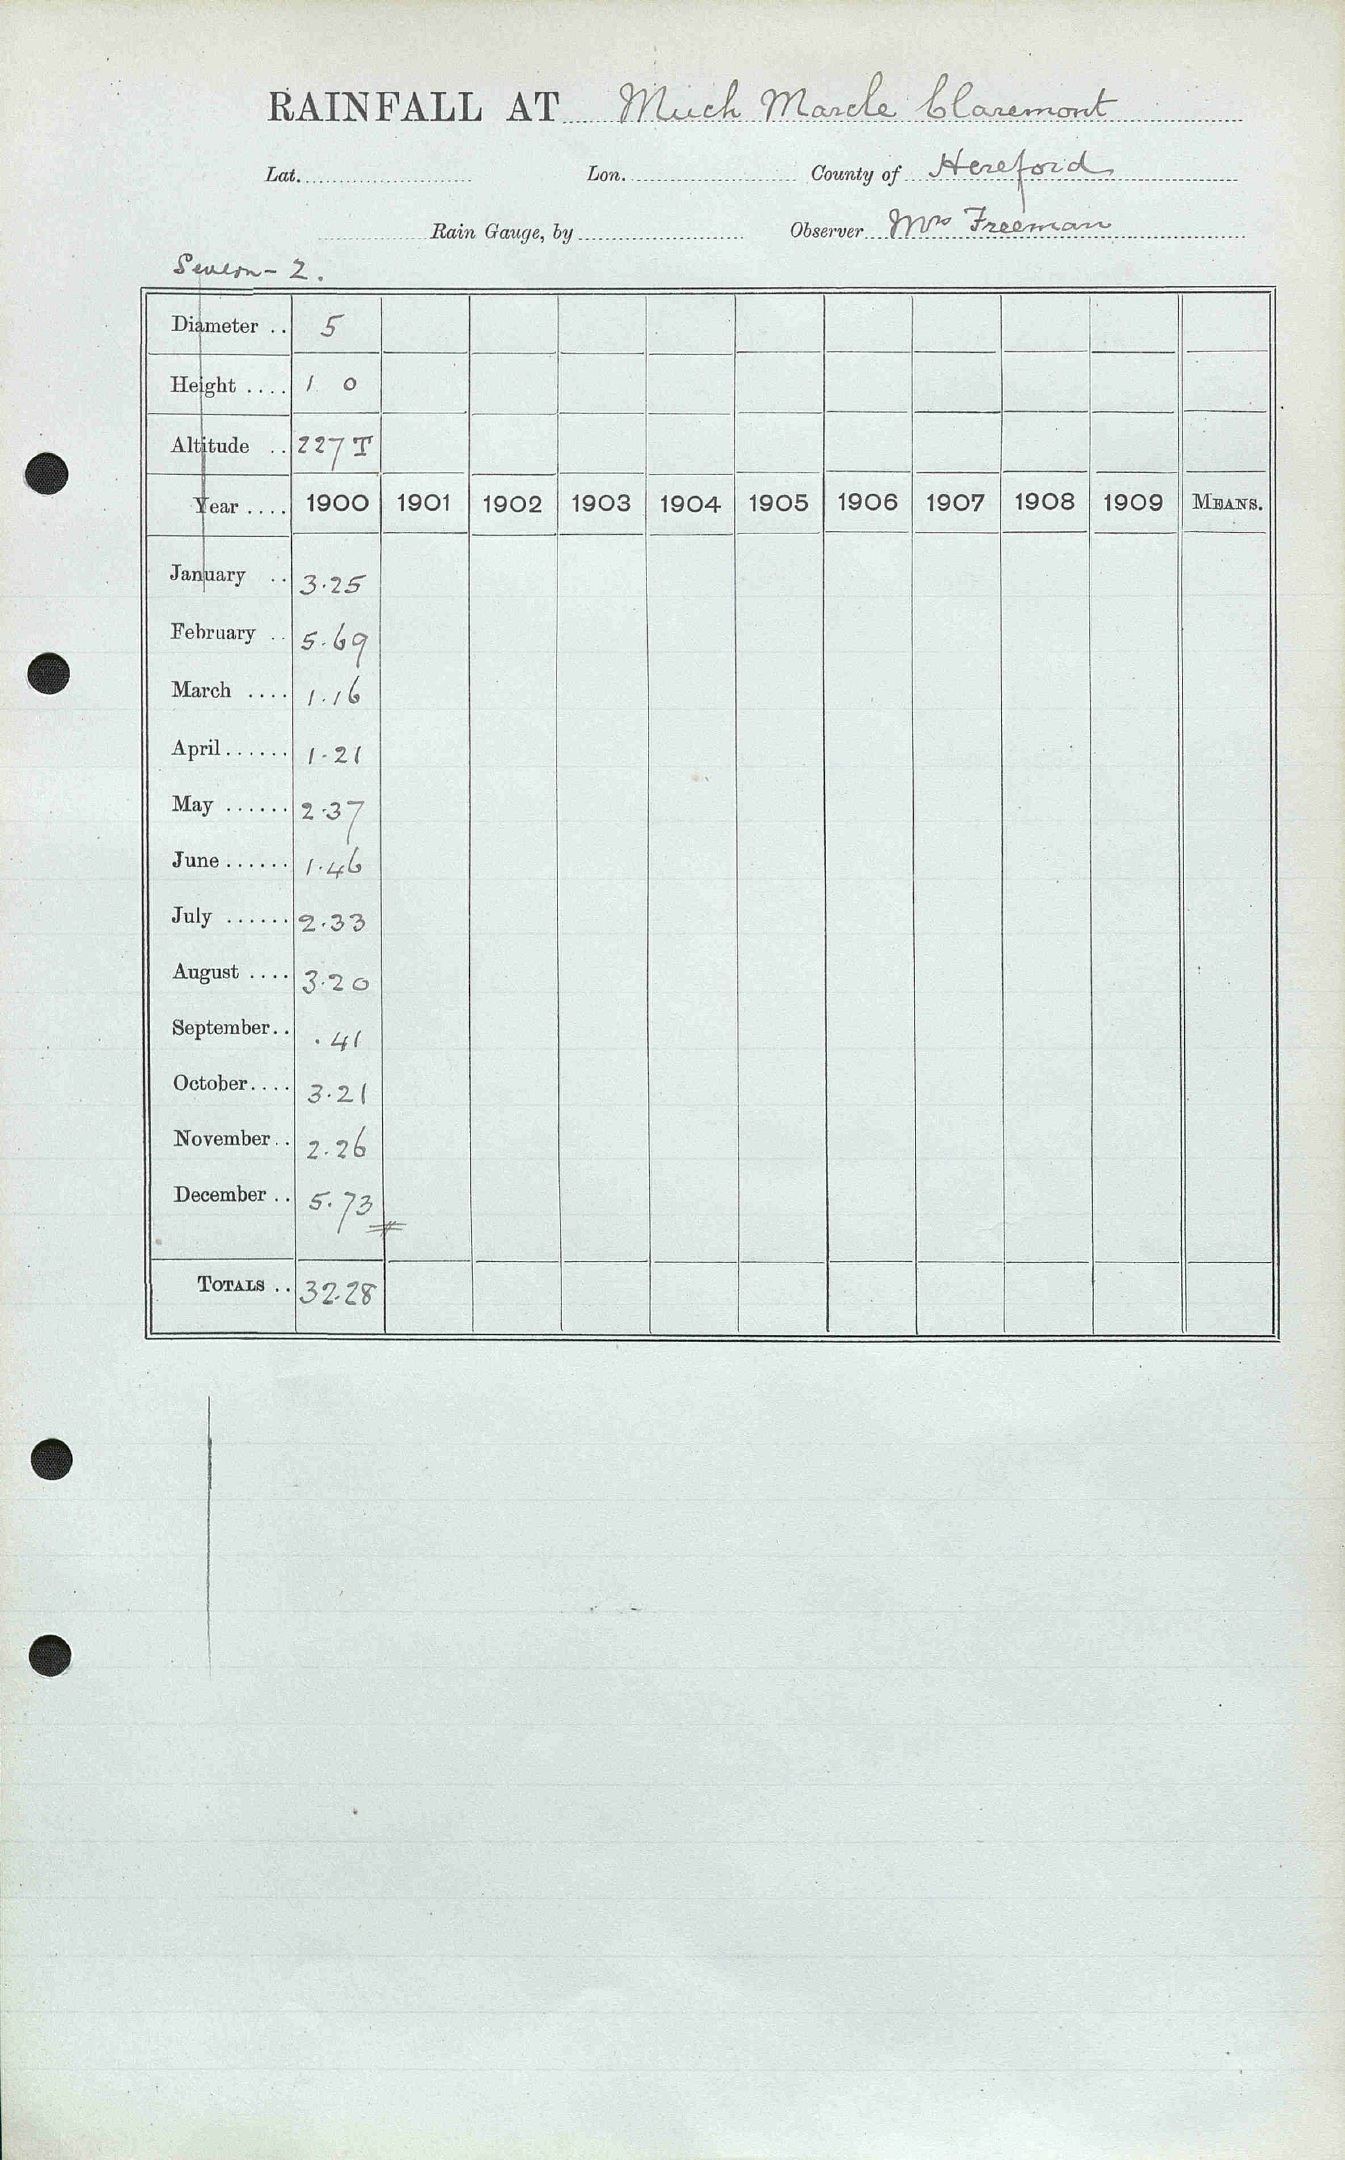 RAINFALL AT Much Marcle Claremont
Lat. Lon. County of Hereford
Rain Gauge, by Observer Mrs Freeman
Severn - 2.
Diameter .. 5
Height .... 1 0
Altitude .. 227 T
Year .... 1900 1901 1902 1903 1904 1905 1906 1907 1908 1909 MEANS.
January .. 3.25
February .. 5.69
March .... 1.16
April ...... 1.21
May ...... 2.37
June ...... 1.46
July ...... 2.33
August .... 3.20
September .. .41
October .... 3.21
November .. 2.26
December .. 5.73
TOTALS .. 32.28